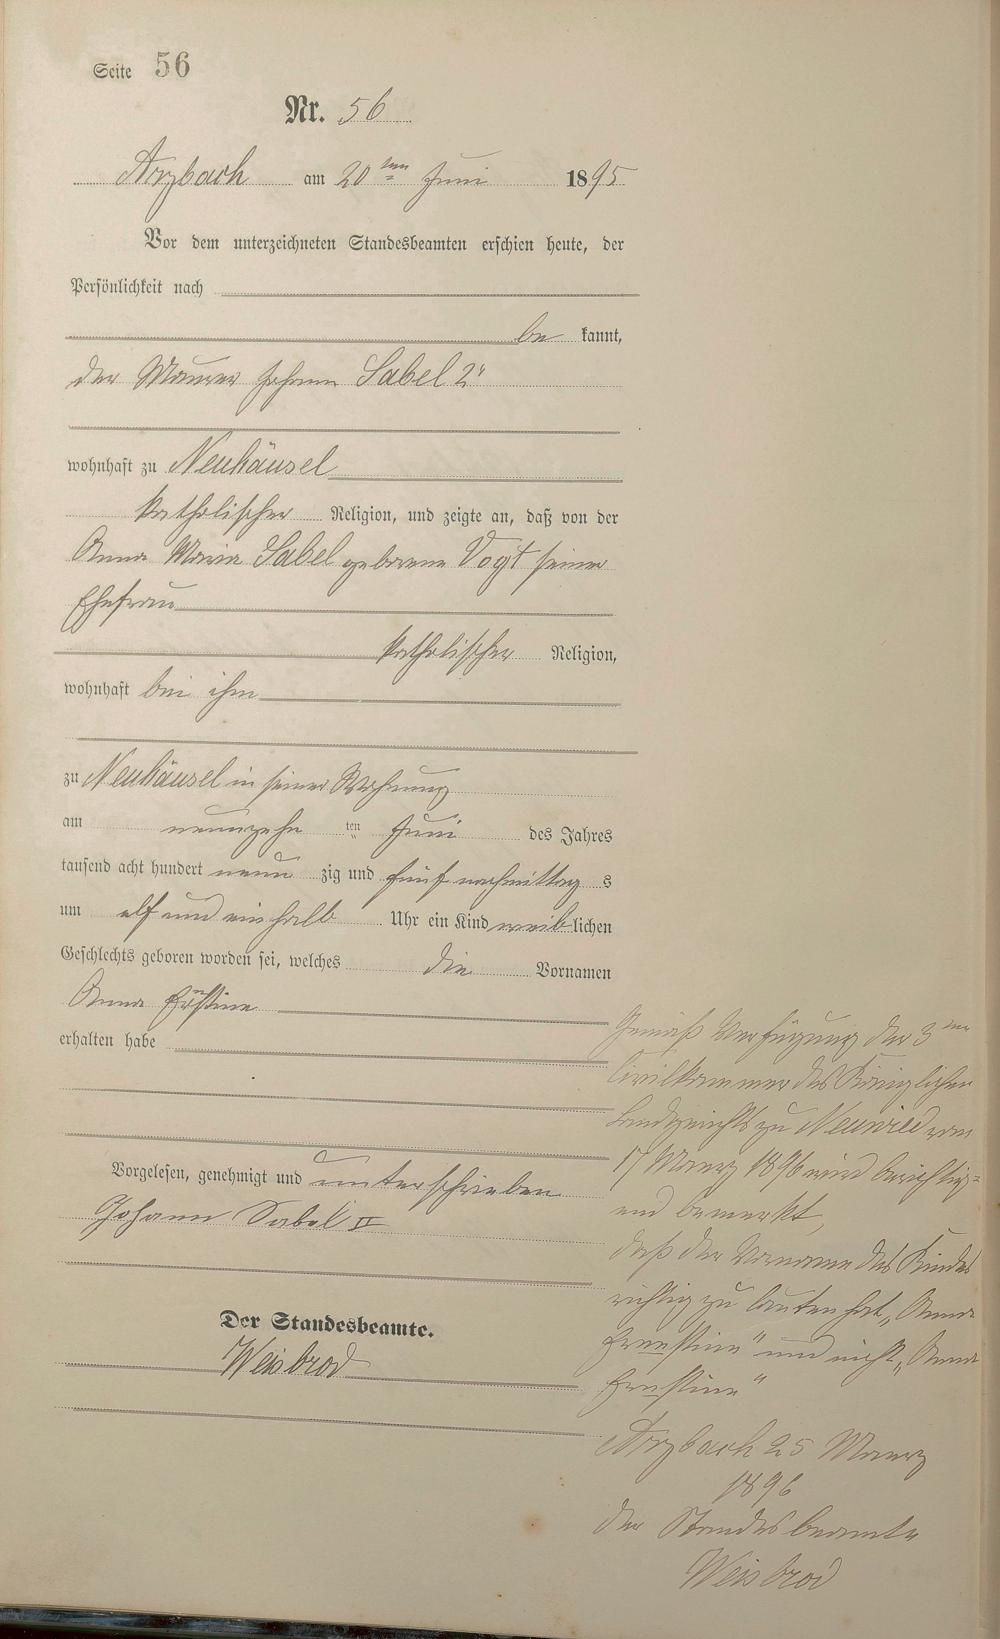 Seite 56
Nr. 56
Arzbach am 20ten Juni 1895
Vor dem unterzeichneten Standesbeamten erschien heute, der
Persönlichkeit nach
be kannt,
der Maurer Johann Sabel 2r
wohnhaft zu Neuhäusel
katholischer Religion, und zeigte an, daß von der
Anna Maria Sabel geborene Vogt seiner
Ehefrau
katholischer Religion,
wohnhaft bei ihm
zu Neuhäusel in seiner Wohnung
am neunzehn ten Juni des Jahres
tausend acht hundert neun zig und fünf nachmittag s
um elf und ein halb Uhr ein Kind weib lichen
Geschlechts geboren worden sei, welches die Vornamen
Anna
erhalten habe
Vorgelesen, genehmigt und unterschrieben
Johann Sabel II
Der Standesbeamte.
Weisbrod
Gemäß Verfügung der 3ten
Civilkammer des Königlichen
Landgerichts zu Neuwied vom
17 Maerz 1896 wird berichtig-
end bemerkt,
daß der Vorname des Kindes
richtig zu lauten hat „Anna
Ernestine" und nicht „Anna
Arzbach 25 Maerz
1896
Der Standesbeamte
Weisbrod